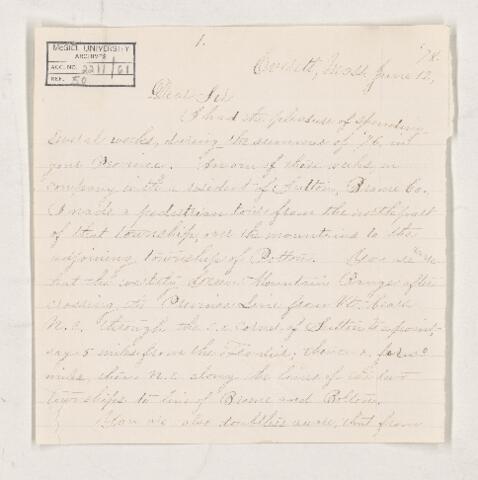 1.
McGILL UNIVERSITY
ARCHIVES
ACC. NO. 2211/61
REF. 50
Everett, Mass June 12, '78.
Dear Sir
I had the pleasure of spending
several weeks, during the summer of '76, in
your Province. In one of those weeks, in
company with a resident of Sutton, Brome Co.
I made a pedestrian tour from the north part
of that township, over the mountains to the
adjoining township of Potton. You
that the Green Mountain Range after
crossing the Province Line from Vt. bears
N.E. through the s.e. corner of Sutton to a point,
say 5 miles from the Frontier, thence a few
miles, thence N.E. along the lines of
townships to line of Brome and Bolton.
You are also doubtless aware, that from